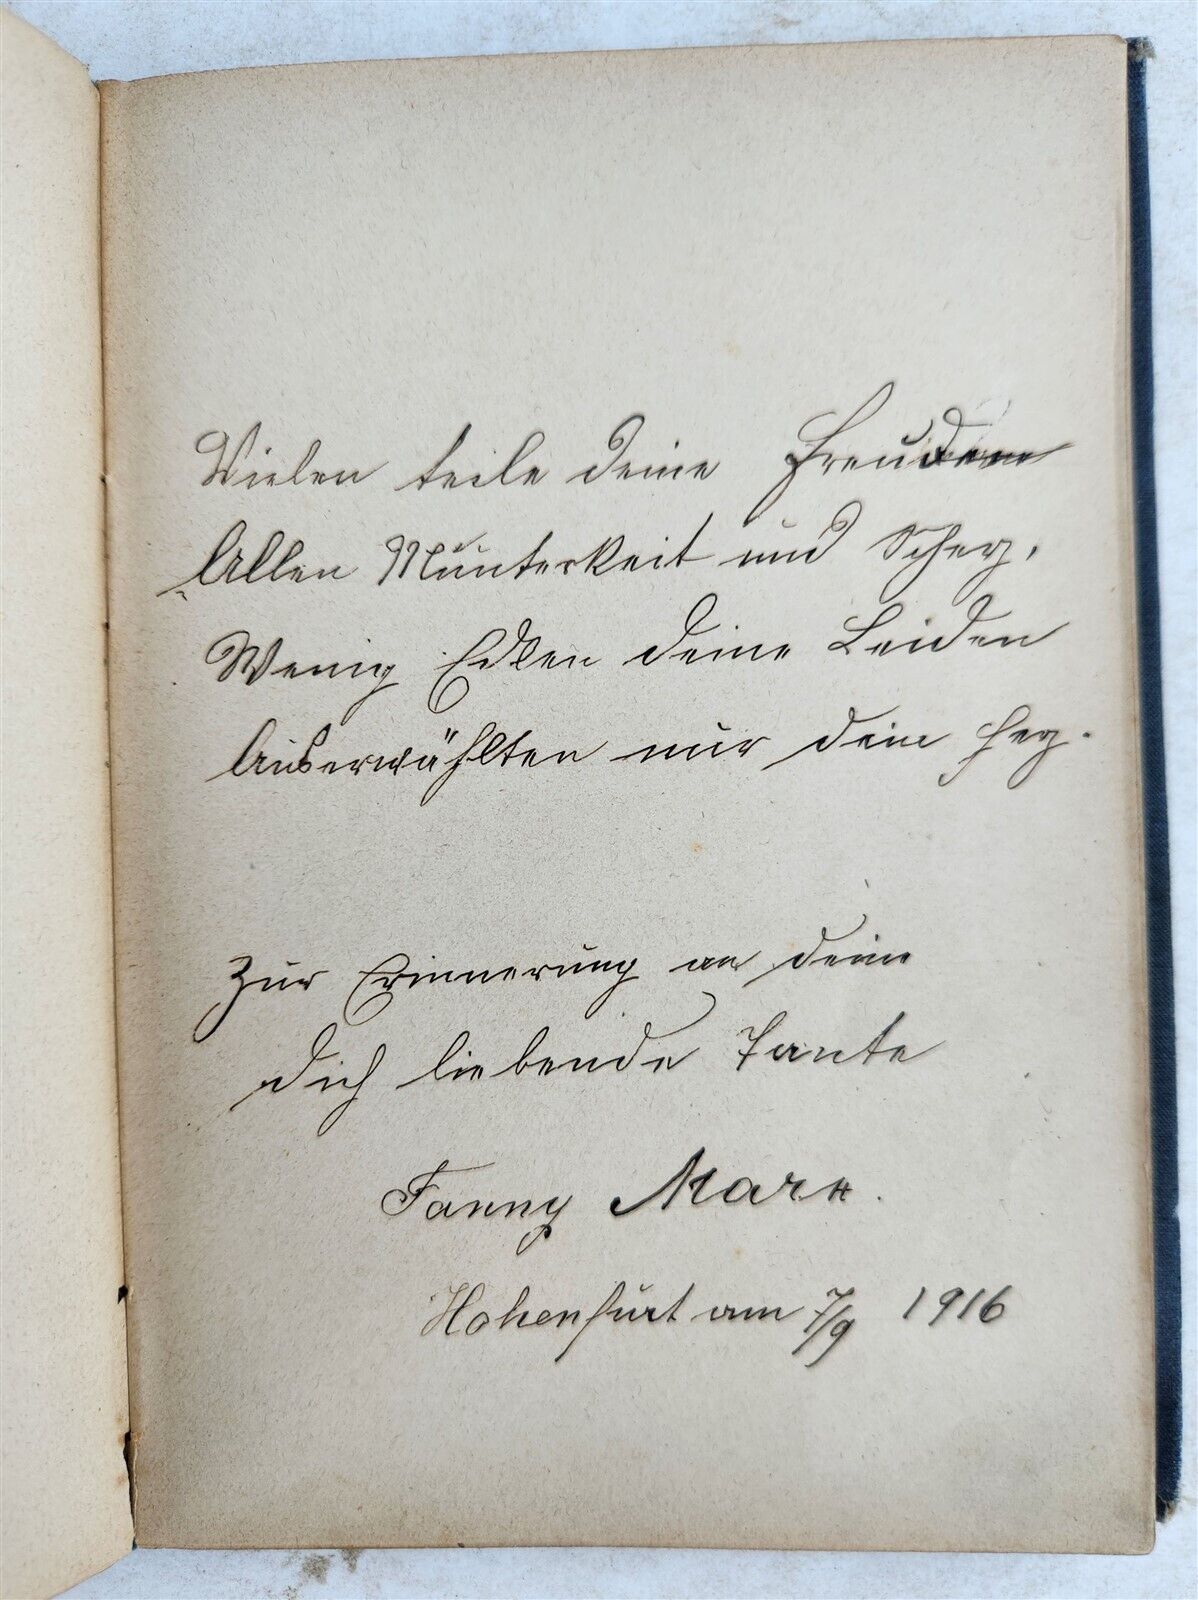 Vielen teile deine Freuden
Allen Munterkeit und Scherz,
Wenig Edlen deine Leiden
Auserwählten nur dein Herz.
Zur Erinnerung an deine
dich liebende Tante
Fanny
Hohenfurt am 7/9 1916